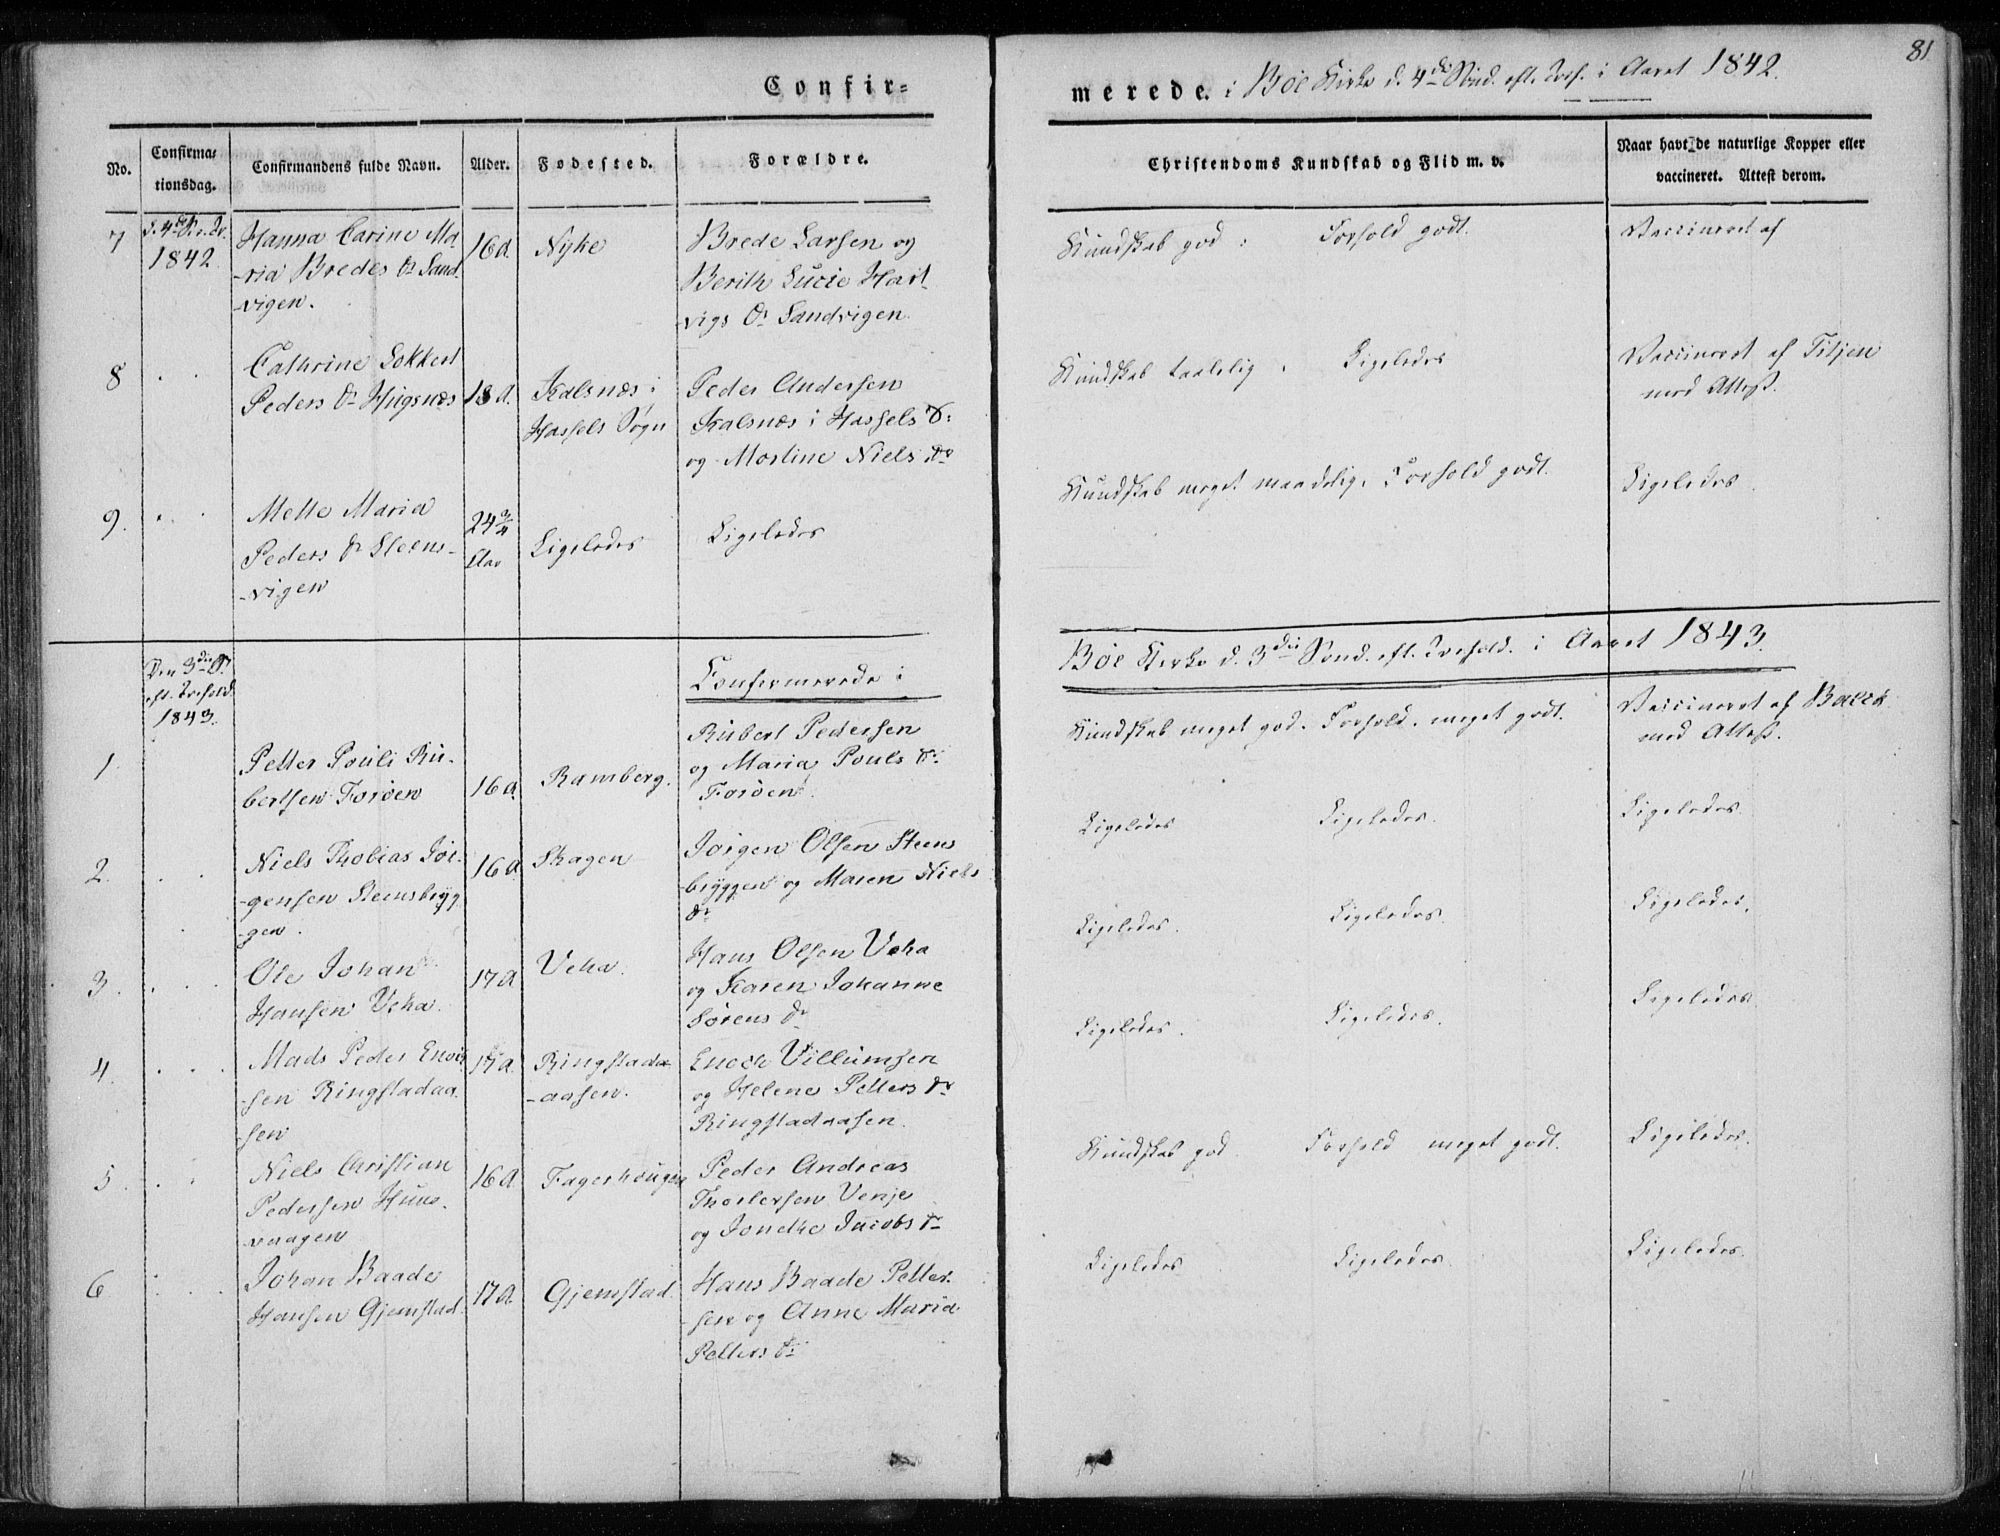 81
Confir-
merede. i Bøe Kirke d. 4de Sønd. eft. Tref. i Aaret 1842.
No.
Confirma-
tionsdag.
Confirmandens fulde Navn.
Alder.
Fødested.
Forældre.
Christendoms Kundskab og Flid m. v.
Naar havt de naturlige Kopper eller
vaccineret. Attest derom.
7
1842
Hanna Carine Ma-
-ria Bredes Dr Sand
-vigen.
16 A.
Nyke
Brede Larsen og
Berith Lucie Hart
-vigs Dr Sandvigen.
Kundskab god : Forhold godt.
Vaccineret af
8
Cathrine Lokkert
Peders Dr Hugsnæs
18 A.
Kalsnæs i
Hassels Sogn
Peder Andersen
Kalsnæs i Hassels S.
og Martine Niels Dr
Kundskab taalelig. Ligeledes
Vaccineret af Tetjen
med Attest.
9.
Mette Maria
Peders Dr Steens-
-vigen
24 3/4
Aar
Ligeledes
Ligeledes
Kundskab meget maadelig. Forhold godt.
Ligeledes
Den 3die S.
eft. Trefold.
1843.
Confirmerede i
Bøe Kirke d. 3die Sønd. eft. Trefold. i Aaret 1843.
1
Petter Pouli Ru-
bertsen Forøen
16 A.
Ramberg.
Rubert Pedersen
og Maria Pouls Dr
Forøen.
Kundskab meget god. Forhold meget godt.
Vaccineret af Balck
med Attest.
2.
Niels Thobias Jør-
-gensen Steensbryg
-gen.
16 A
Skagen
Jørgen Olsen Steens
-bryggen og Maren Niels
Dr
Ligeledes Ligeledes.
Ligeledes.
3.
Ole Johan
Hansen Veha.
17 A
Veha.
Hans Olsen Veha
og Karen Johanne
Sørens Dr
Ligeledes. Ligeledes.
Ligeledes.
4.
Mads Peder Enoc
-sen Ringstadaa
-sen
17 A.
Ringstada
-aasen.
Enoch Villumsen
og Helene Petters Dr
Ringstadaasen.
Ligeledes. Ligeledes.
Ligeledes.
5.
Niels Christian
Pedersen Huns-
-vaagen
16 A.
Fagerhougen
Peder Andreas
Thorlersen Venje
og Jondke Jacobs Dr
Kundskab god Forhold meget godt.
Ligeledes.
6
Johan Baade
Hansen Gjemstad.
17 A.
Gjemstad.
Hans Baade Petter-
-sen og Anne Maria
Petters Dr
Ligeledes Ligeledes.
Ligeledes.